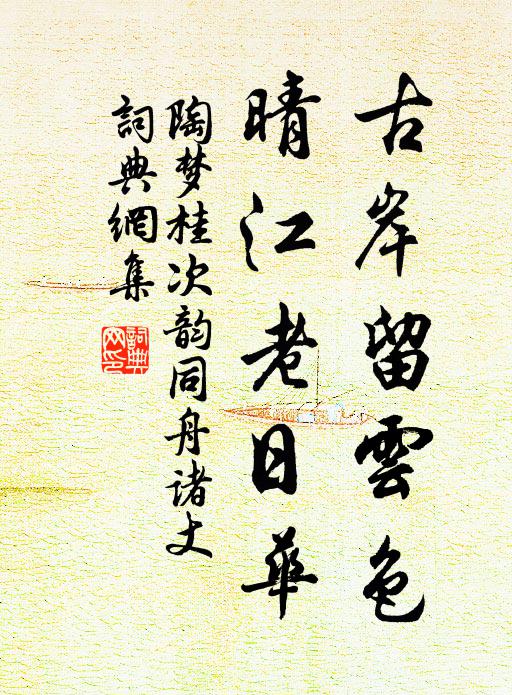 古岸留雲色
晴江老日華
陶梦桂次韵同舟诸丈
詞典網集
詞典
网印